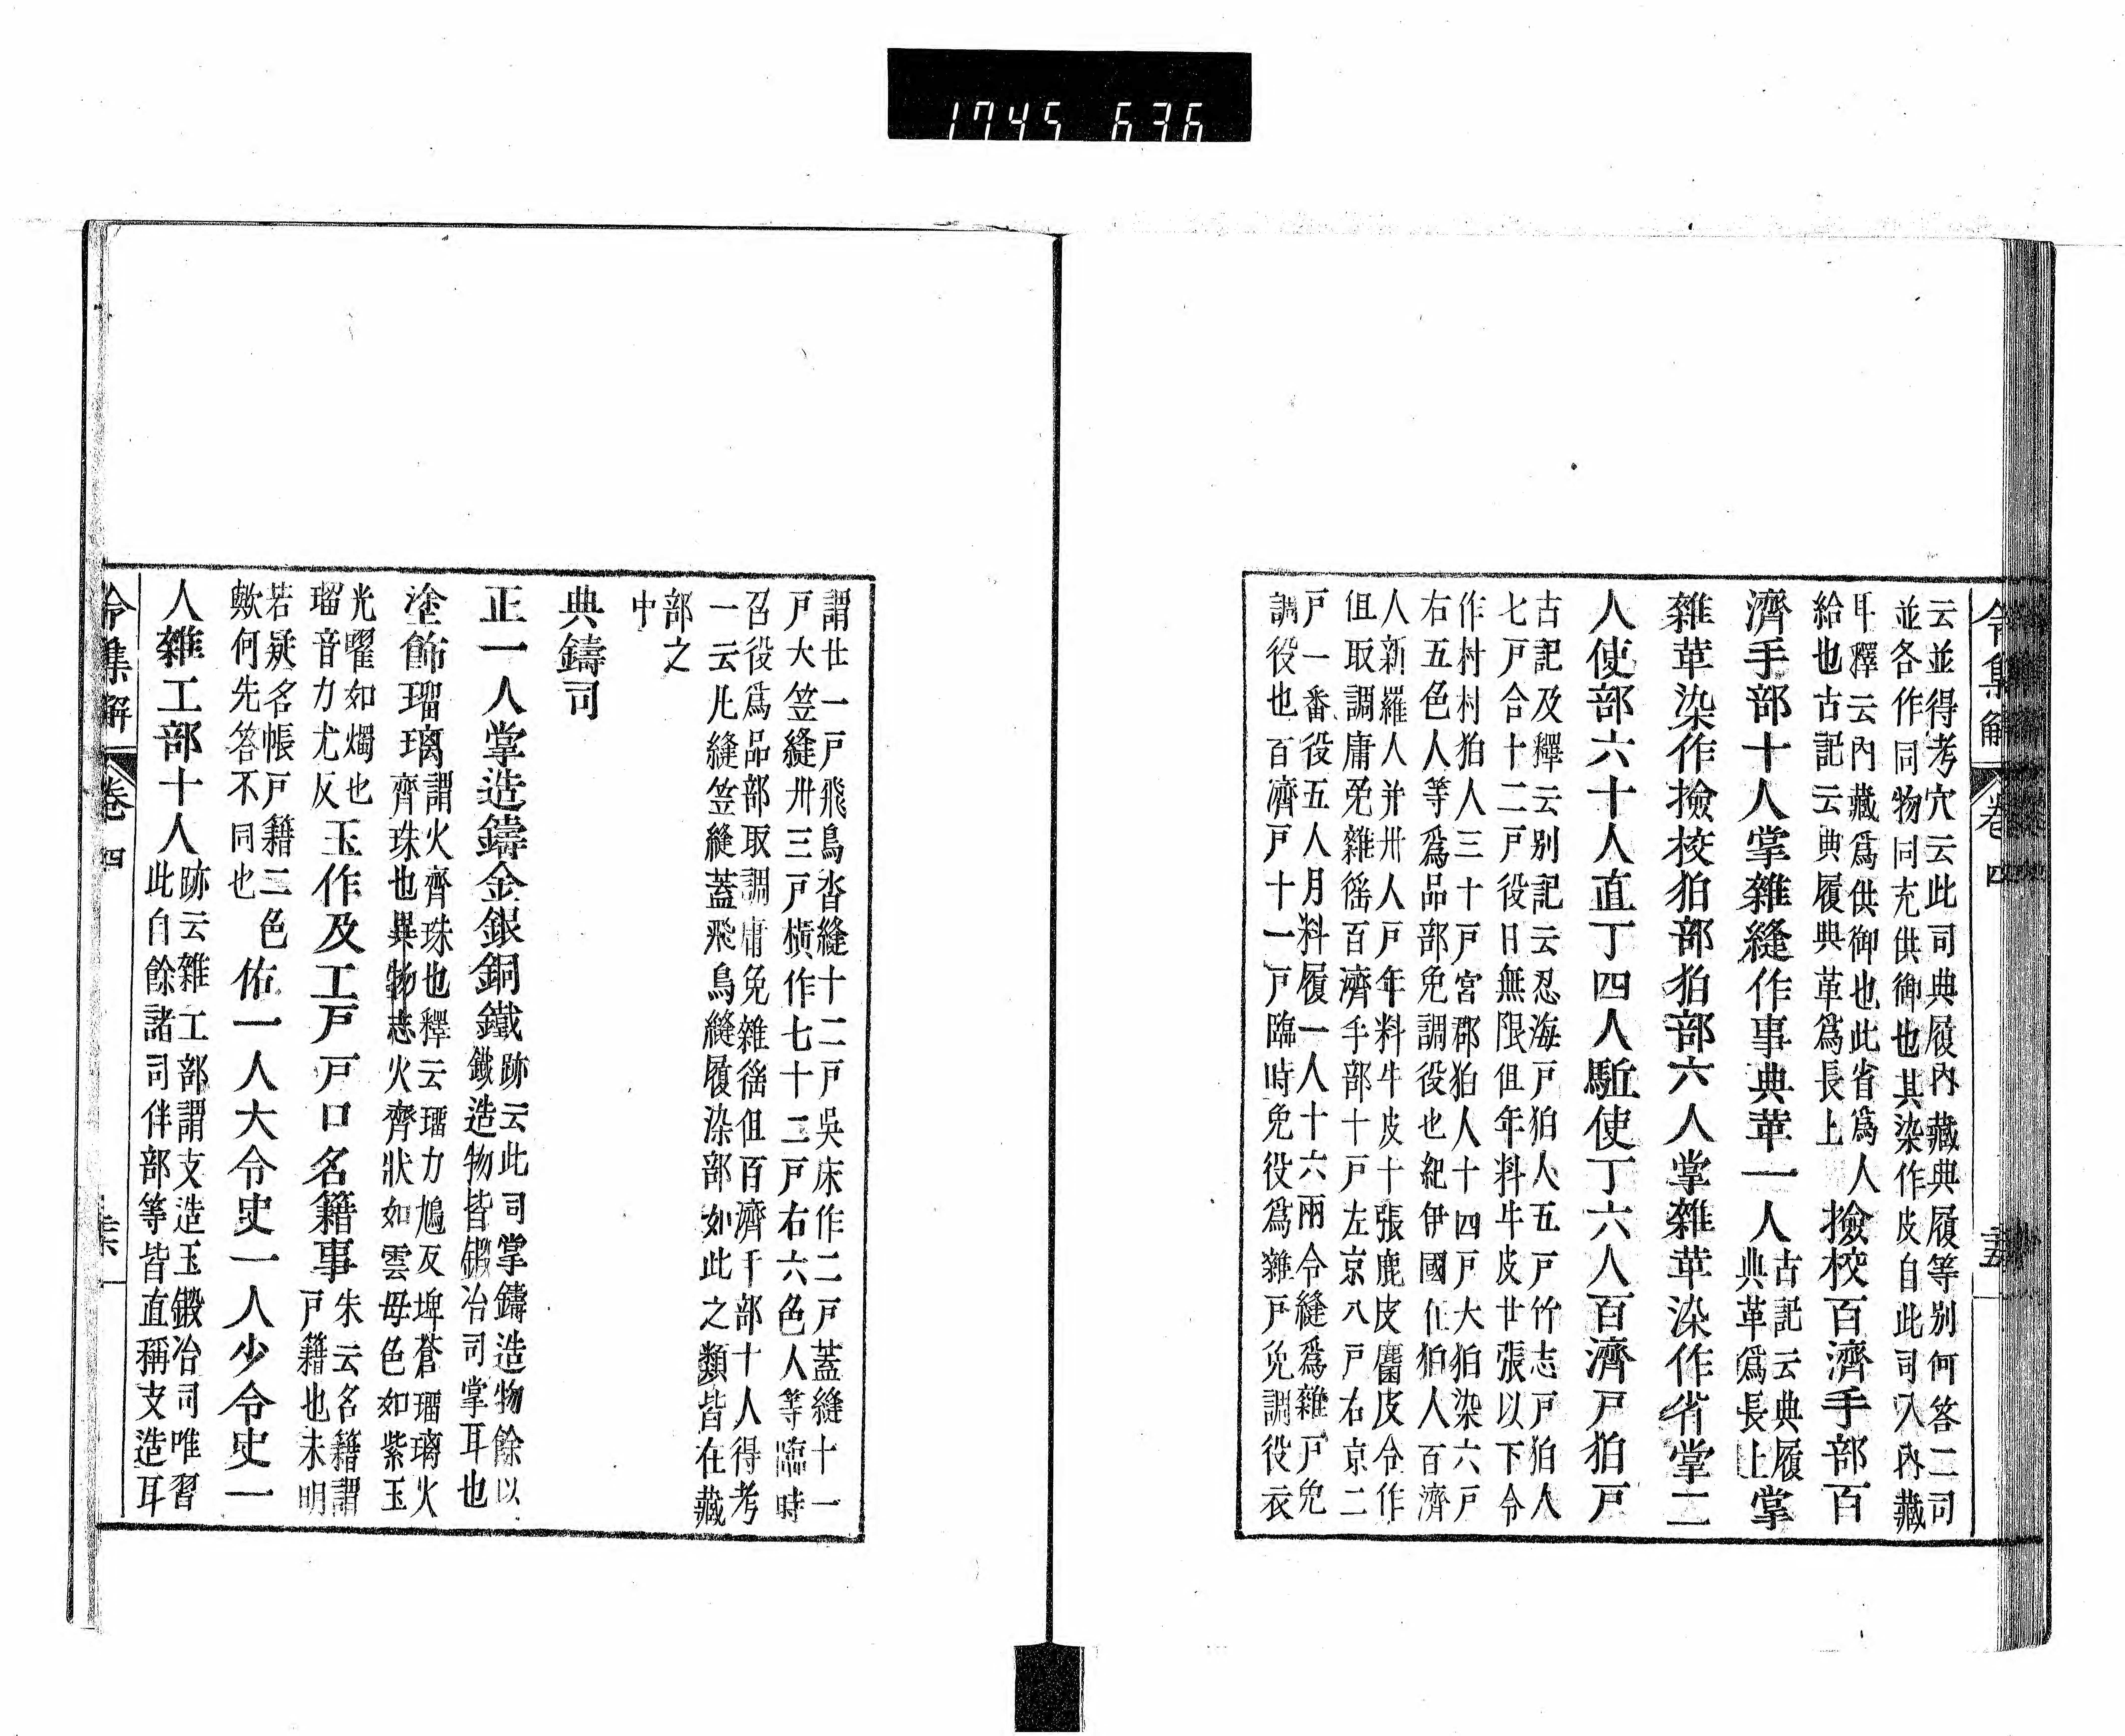 1745 636
令集解 卷四
云並得考穴云此司典履內藏典履等别何答二司
並各作同物同充供御也其染作皮自此司入內藏
耳釋云內藏爲供御也此省爲人
給也古記云典履典革爲長上
撿校百濟手部百
濟手部十人掌雜縫作事典革一人
古記云典履
典革爲長上
掌
雜革染作撿校狛部狛部六人掌雜革染作省掌二
人使部六十人直丁四人駈使丁六人百濟戸狛戸
古記及釋云别記云忍海戸狛人五戸竹志戸狛人
七戸合十二戸役日無限但年料牛皮廿張以下令
作村村狛人三十戸宮郡狛人十四戸大狛染六戸
右五色人等爲品部免調役也紀伊國在狛人百濟
人新羅人并卅人戸年料牛皮十張鹿皮麞皮令作
但取調庸免雜徭百濟手部十戸左京八戸右京二
戸一番役五人月料履一人十六兩令縫爲雜戸免
調役也百濟戸十一戸臨時免役爲雜戸免調役衣
謂廿一戸飛鳥沓縫十二戸吳床作二戸蓋縫十一
戸大笠縫卅三戸橫作七十二戸右六色人等臨時
召役爲品部取調庸免雜徭但百濟手部十人得考
一云凡縫笠縫蓋飛鳥縫履染部如此之類皆在藏
部之
中
典鑄司
正一人掌造鑄金銀銅鐵
跡云此司掌鑄造物餘以
鐵造物皆鍛冶司掌耳也
塗飾瑠璃
謂火齊珠也釋云瑠力鳩反埤蒼瑠璃火
齊珠也異物志火齊狀如雲母色如紫玉
光曜如燭也
瑠音力尤反
玉作及工戸戸口名籍事
朱云名籍謂
戸籍也未明
若疑名帳戸籍二色
歟何先答不同也
佑一人大令史一人少令史一
人雜工部十人
跡云雜工部謂支造玉鍛冶司唯習
此自餘諸司伴部等皆直稱支造耳
令集解 卷四